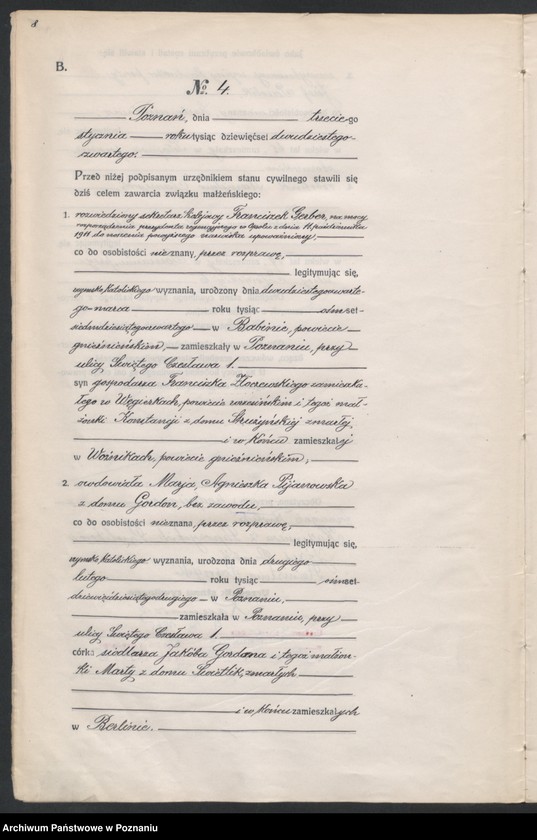 8
B.
No. 4.
Poznań, dnia trzeciego
stycznia roku tysiąc dziewięćset dwudziestego-
czwartego.
Przed niżej podpisanym urzędnikiem stanu cywilnego stawili się
dziś celem zawarcia związku małżeńskiego:
1. rozwiedziony sekretarz kolejowy Franciszek Gerber, na mocy
rozporządzenia prezydenta rejencyjnego w Opolu z dnia 14 października
1911 do noszenia powyższego nazwiska upoważniony,
co do osobistości nieznany, przez rozprawę,
legitymując się,
rzymsko katolickiego wyznania, urodzony dnia dwudziestegoczwarte-
go marca roku tysiąc ośmset-
siedmdziesiątegoczwartego w Babinie, powiecie
gnieźnieńskim, zamieszkały w Poznaniu, przy
ulicy Świętego Czesława 1.
syn gospodarza Franciszka
łego w Węgierkach, powiecie wrzesińskim i tegoż mał-
żonki Konstancji z domu zmarłej,
i w końcu zamieszkałej
w Woźnikach, powiecie gnieźnieńskim,
2. owdowiała Marja, Agnieszka Pijanowska
z domu Gordon, bez zawodu,
co do osobistości nieznana, przez rozprawę,
legitymując się,
rzymsko katolickiego wyznania, urodzona dnia drugiego
lutego roku tysiąc ośmset-
dziewięćdziesiątegodrugiego w Poznaniu,
zamieszkała w Poznaniu, przy
ulicy Świętego Czesława 1.
córka siodlarza Jakóba Gordona i tegoż małżon-
ki Marty z domu zmarłych
i w końcu zamieszkałych
w Berlinie.
Archiwum Państwowe w Poznaniu